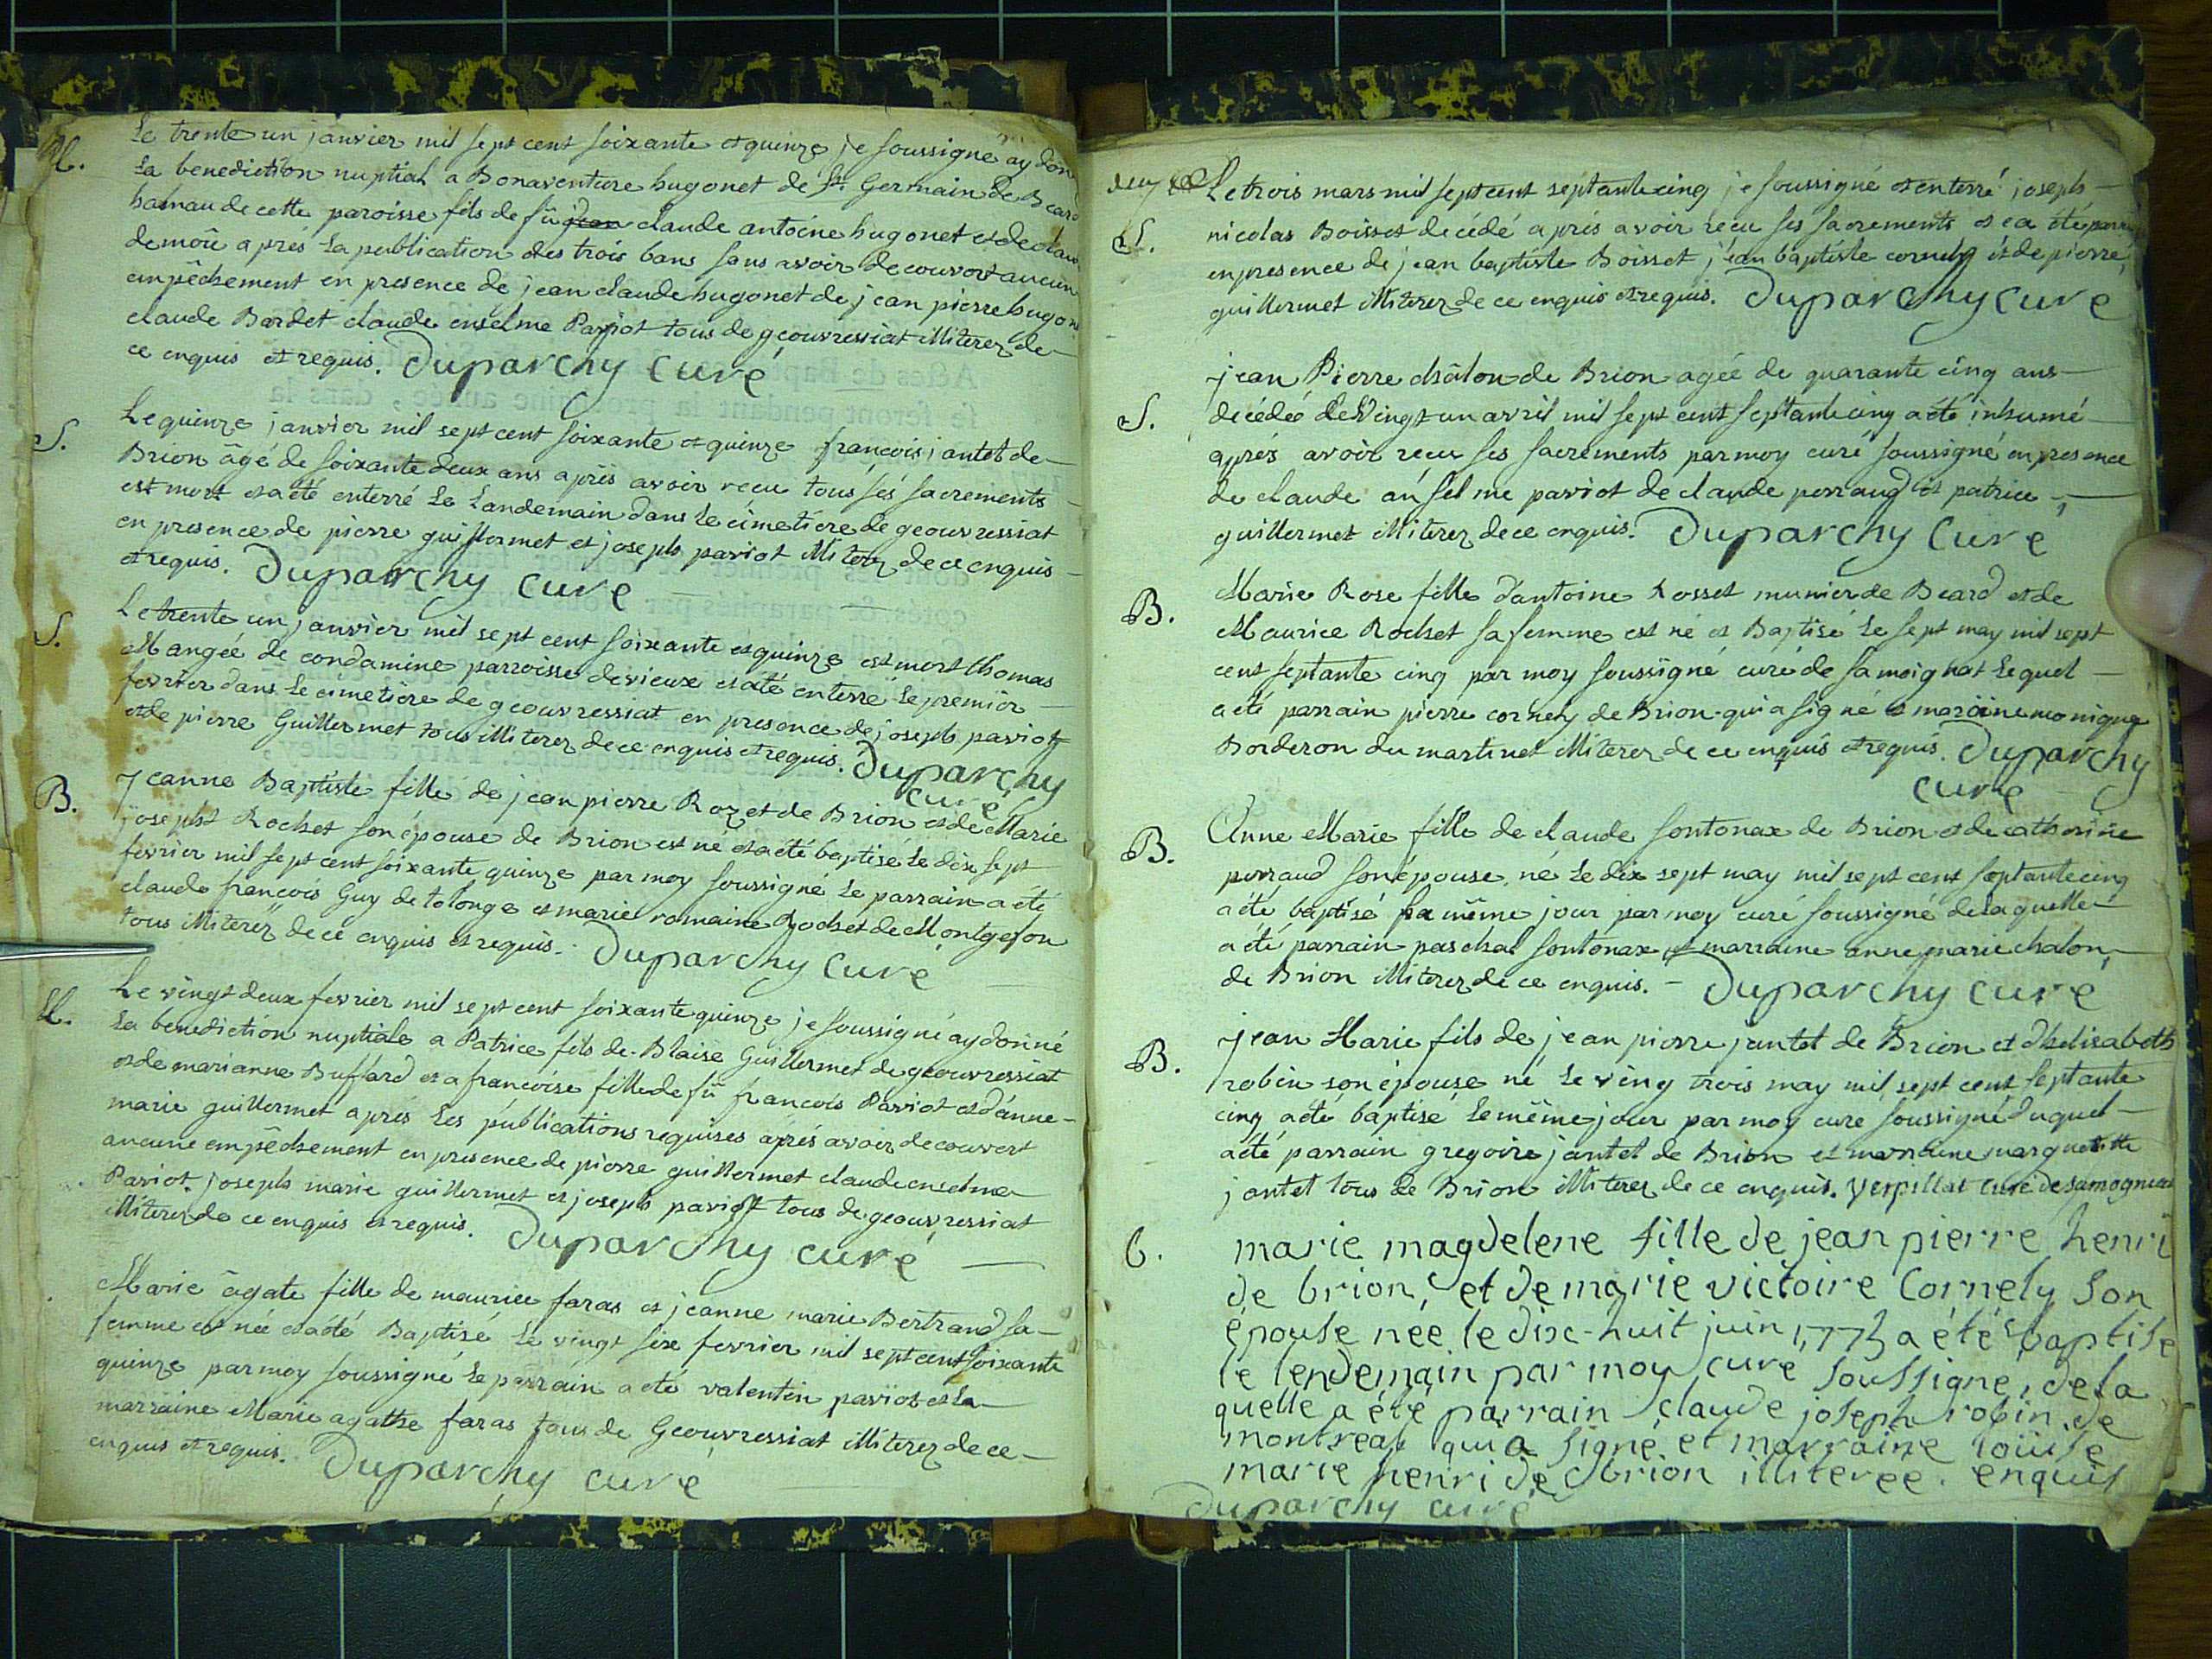 M.
Le trente un janvier mil sept cent soixante et quinze je soussigné ay don
La benediction nuptial a Bonaventure hugonet de St. Germain de Beard
hamau de cette paroisse fils de fü claude antoine hugonet et de
demoü après La publication des trois bans sans avoir decouvert aucun
empêchement en presence de jean claude hugonet de jean pierre hugon
claude Bardet claude enselme Paviot tous de geouvressiat illiterez de
ce enquis et requis. Duparchy Curé
S.
Le quinze janvier mil sept cent soixante et quinze francois jantet de
Brion âgé de soixante deux ans après avoir recu tous ses sacrements
est mort et a été enterré Le Landemain dans Le cimetiere de geouvressiat
en presence de pierre guillermet et joseph paviot illiterz de ce enquis
et requis. Duparchy curé
S.
Le trente un janvier mil sept cent soixante et quinze est mort thomas
Mangeé de condamine parroisse de vieux et a été enterré Le premiér
fevrier dans Le cimetiere de geouvressiat en presence de joseph paviot
et de pierre Guillermet tous illiterez de ce enquis et requis. Duparchy
curé
B.
Jeanne Baptiste fille de jean pierre Rozet de Brion et de Marie
josepht Rochet son épouse de Brion est né et a été baptisé Le dix sept
fevrier mil sept cent soixante quinze par moy soussigné Le parrain a été
claude francois Guy de tolonge et marie romaine Rochet de Montgefon
tous illiterez de ce enquis et requis. Duparchy Curé
M.
Le vingt deux fevrier mil sept cent soixante quinze je soussigné ay donné
La benediction nuptiale a Patrice fils de Blaise Guillermet de geouvressiat
et de marianne Buffard et a francoise fille de fü francois Paviot et d'anne
marie guillermet après Les publications requises après avoir decouvert
aucune empêchement en presence de pierre guillermet claude enselme
Paviot. joseph marie guillermet et joseph paviot tous de geouvressiat
illiterez de ce enquis et requis. Duparchy curé
Marie âgate fille de maurice faras et jeanne marie Bertrand sa
femme est née et a été Baptisé Le vingt six fevrier mil sept cent soixante
quinze par moy soussigné Le parrain a été valentin paviot et La
marraine Marie agathe faras tous de Geouvressiat illiterez de ce
enquis et requis. Duparchy curé
Le trois mars mil sept cent septante cinq je soussigné et enterré joseph
S.
nicolas Boisset decédé après avoir recu ses sacrements et ca été
en presence de jean baptiste Boisset jean baptiste cornely et de pierre
guillermet illiterez de ce enquis et requis. Duparchy Curé
jean Pierre châlon de Brion agéé de quarante cinq ans
S.
decédéé Le vingt un avril mil sept cent septante cinq a été inhumé
après avoir recu ses sacrements par moy curé soussigné en presence
de claude anselme paviot de claude perraud et patrice
guillermet illiterez de ce enquis. Duparchy Curé
B.
Marie Rose fille d'antoine Rosset munier de Beard et de
Maurice Rochet sa femme est né et Baptisé Le sept may mil sept
cent septante cinq par moy soussigné curé de samoignat Lequel
a été parrain pierre cornely de Brion qui a signé et maraine monique
Borderon du martinet illiterez de ce enquis et requis. Duparchy
curé
B.
Anne Marie fille de claude fontonax de Brion et de catherine
perraud son épouse né Le dix sept may mil sept cent septante cinq
a été baptisé Le même jour par moy curé soussigné de laquelle
a été parrain paschal fontonax et marraine anne marie chalon
de Brion illiterez de ce enquis. Duparchy curé
B.
jean Marie fils de jean pierre jantet de Brion et d'helisabeth
robin son épouse né Le ving trois may mil sept cent septante
cinq a été baptisé Le même jour par moy curé soussigné duquel
a été parrain gregoire jantet de Brion et marraine
jantet tous de Brion illiterez de ce enquis. Verpillat curé de samognat
b.
marie magdelene fille de jean pierre henri
de brion, et de marie victoire Cornely son
épouse née le dix-huit juin 1775 a été baptise
le lendemain par moy curé soussigné, de la
quelle a été parrain claude joseph robin de
montreal qui a signé et marraine loüise
marie henri de brion illiterée. enquis
Duparchy curé